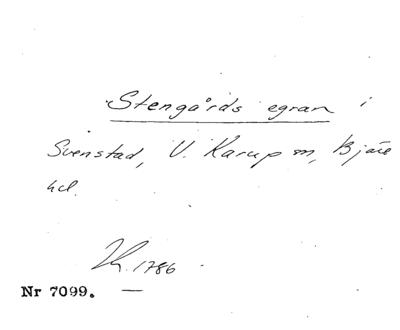 Stengårds egran i
Svenstad, V. Karup sn, Bjäre
hd.
Lh. 1786
Nr 7099. —